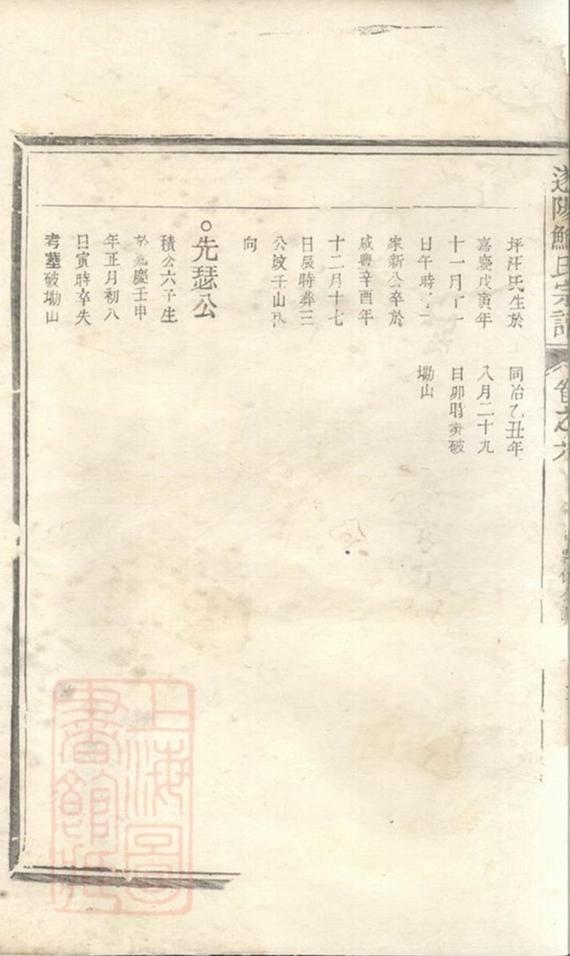 鮑氏宗譜
卷之六
坪汪氏生於
嘉慶戊寅年
十一月十一
日午時
家新公卒於
咸豐辛酉年
十二月十七
日辰時葬三
公坟子山
向
同治乙丑年
八月二十九
日卯時葬破
塲山
○先瑟公
積公六子生
於嘉慶壬申
年正月初八
日寅時卒失
考墓破塲山
上海圖
書館藏